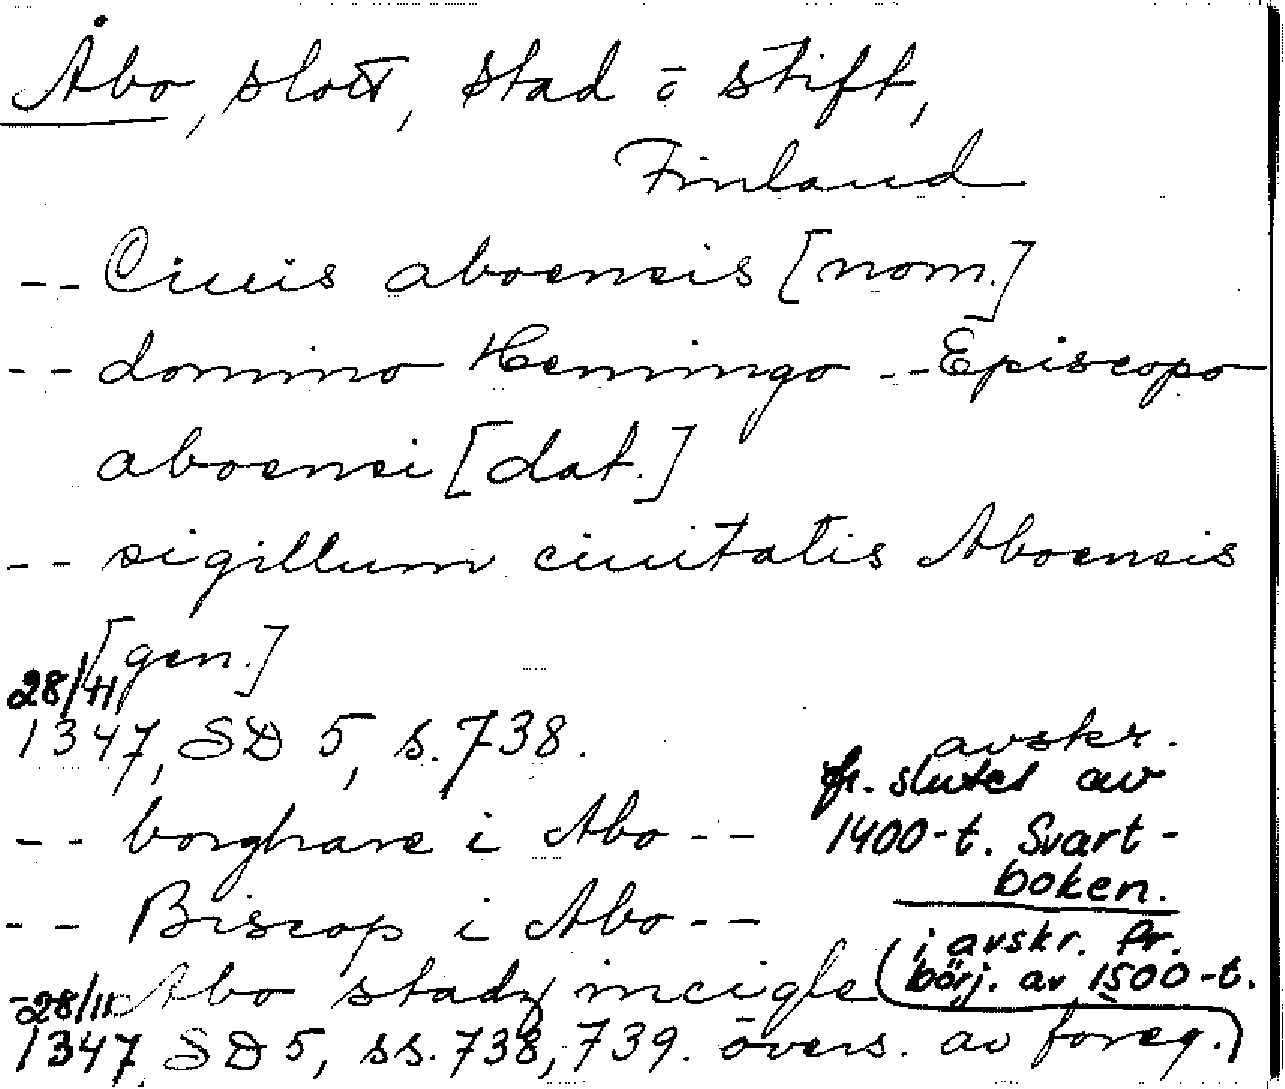 Åbo, slott, stad o stift,
Finland
-- Ciuis aboensis [nom.]
-- domino Hemingo -- Episcopo
aboensi [dat.]
-- sigillum ciuitatis Aboensis
[gen.]
28/11
1347, SD 5, s. 738.
avskr.
fr. slutet av
1400-t. Svart-
boken.
-- borghare i Abo --
-- Biscop i Abo --
-- Abo stadz incigle
(i avskr. fr.
börj. av 1500-t.
28/11
1347, SD 5, ss. 738, 739. övers. av föreg.)